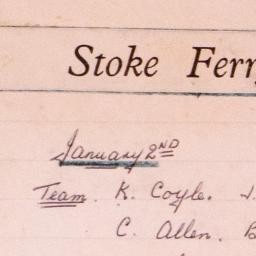 Stoke Ferry
January 2ND
Team. K. Coyle. J.
C. Allen. B